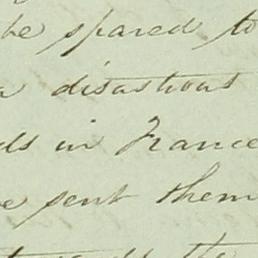 be spared to
a disastrous
ds in France
e sent them
the